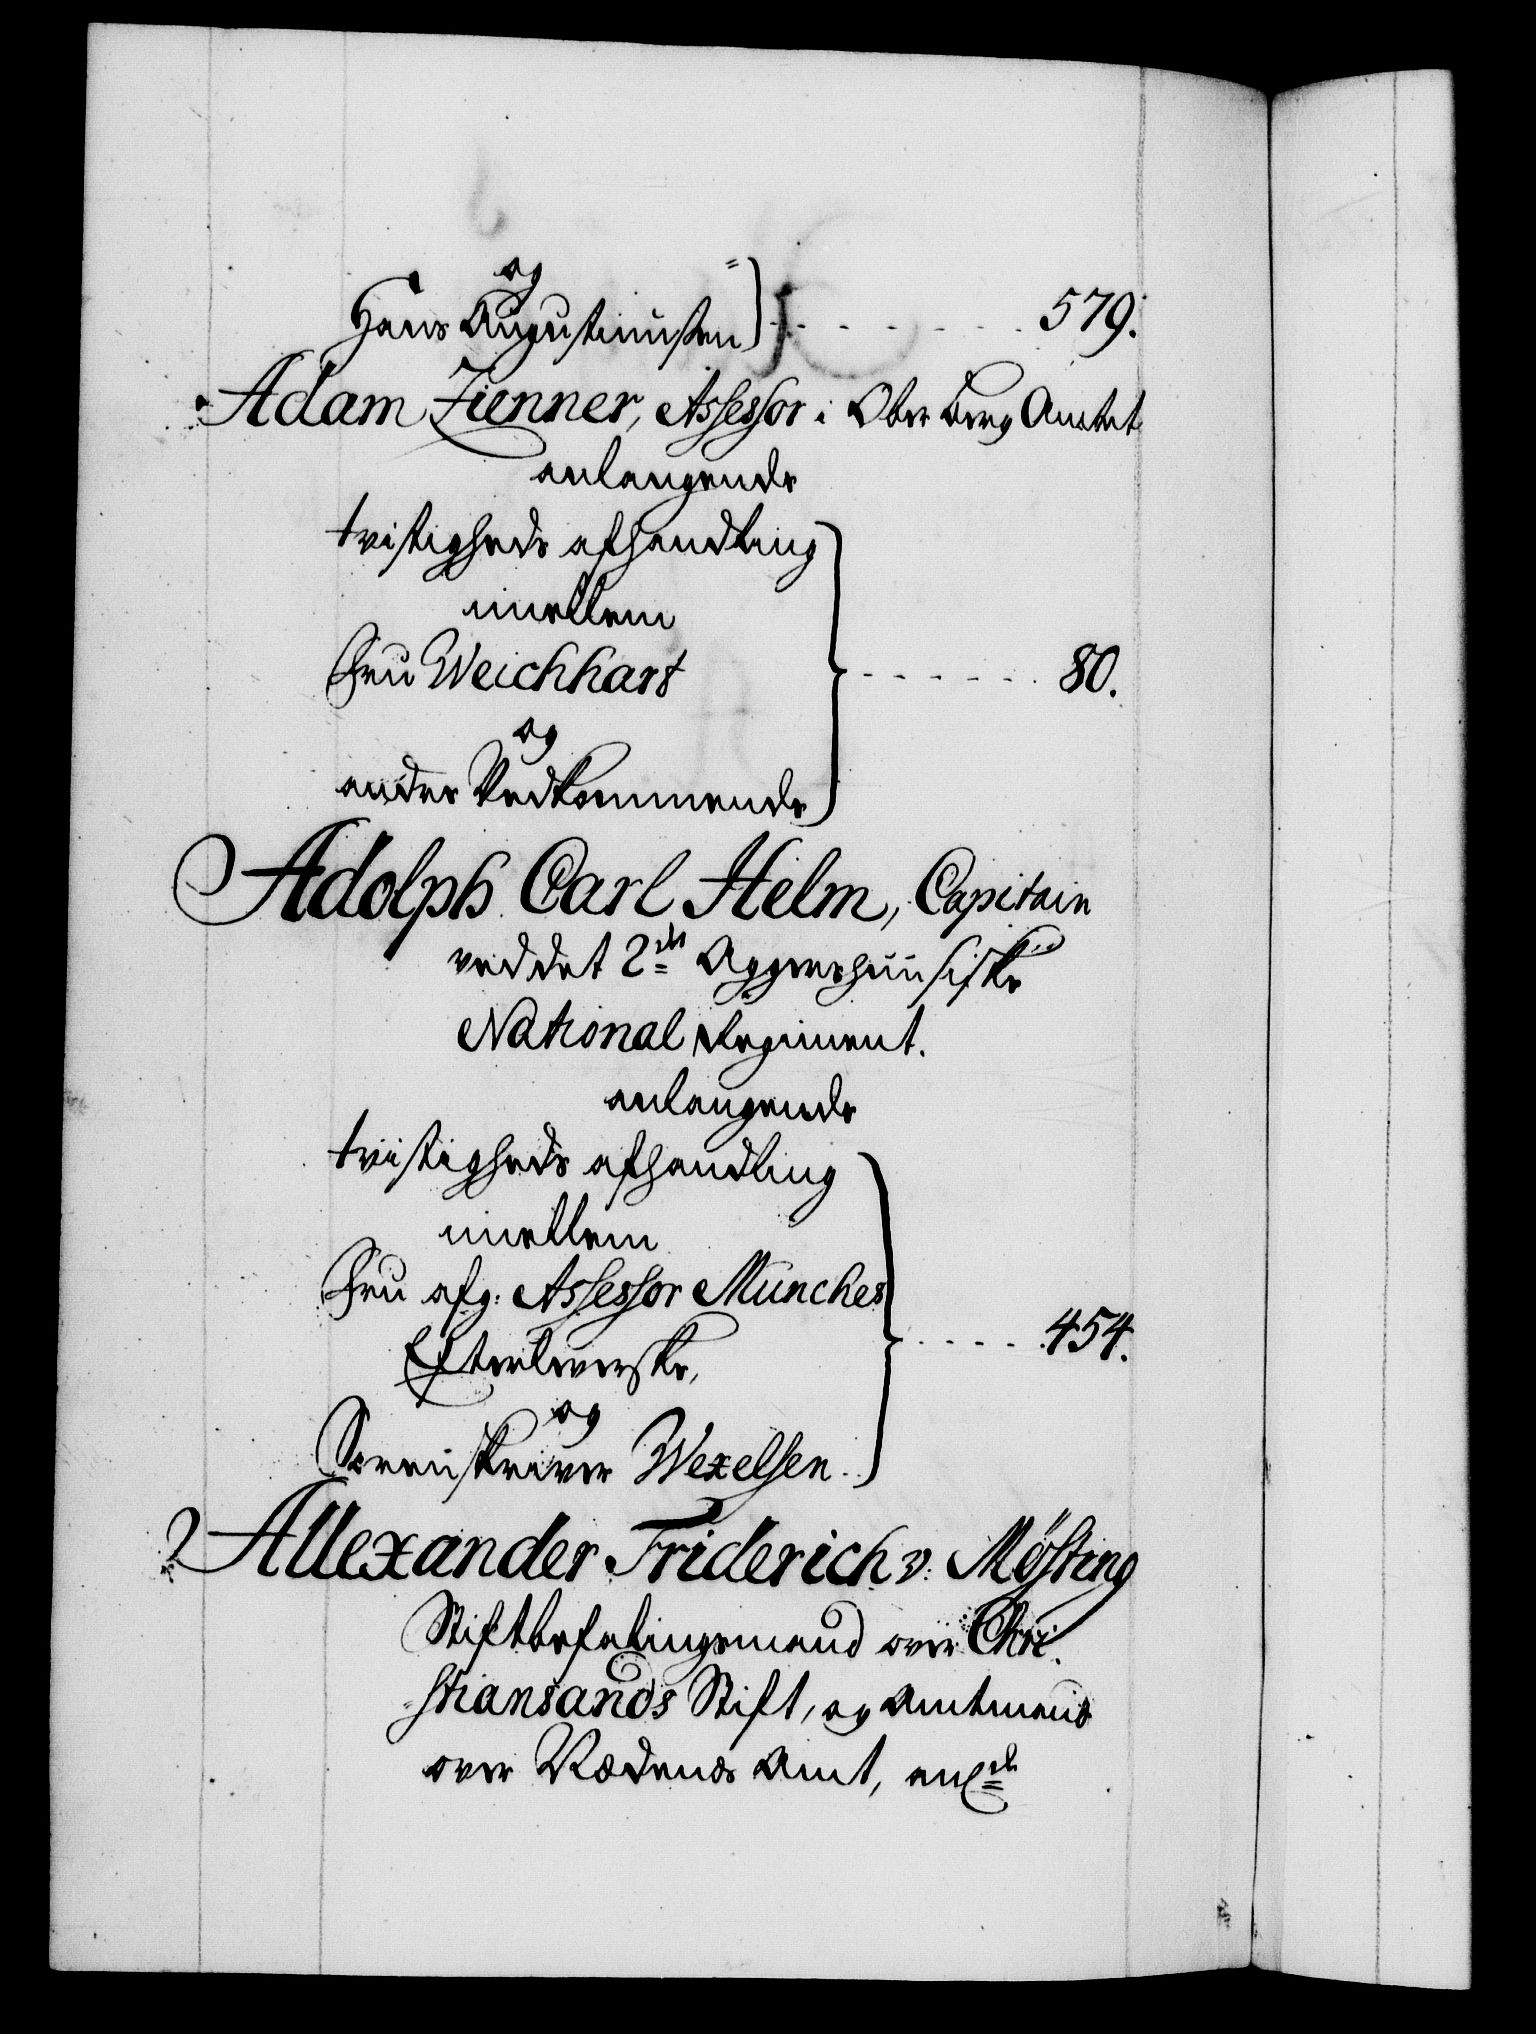 og
Hans Augustinussen . . . . . . . . 579.
Adam Zienner, Assessor i Ober Berg Amtet
anlangende
tvistigheds afhandling
imellem
Fru Weichhart . . . . . . . 80.
og
andre Vedkommende
Adolph Carl Helm, Capitain
ved det 2det Aggershuusiske
National Regiment.
anlangende
tvistigheds afhandling
imellem
Fru afg: Assessor Munches
Efterleverske, . . . . . 454.
og
Sorenskriver Wexelsen.
Allexander Friderich v: Møsting
Stiftbefalingsmand over Chri-
stiansands Stift, og Amtmand
over Nedenes Amt, anl:de